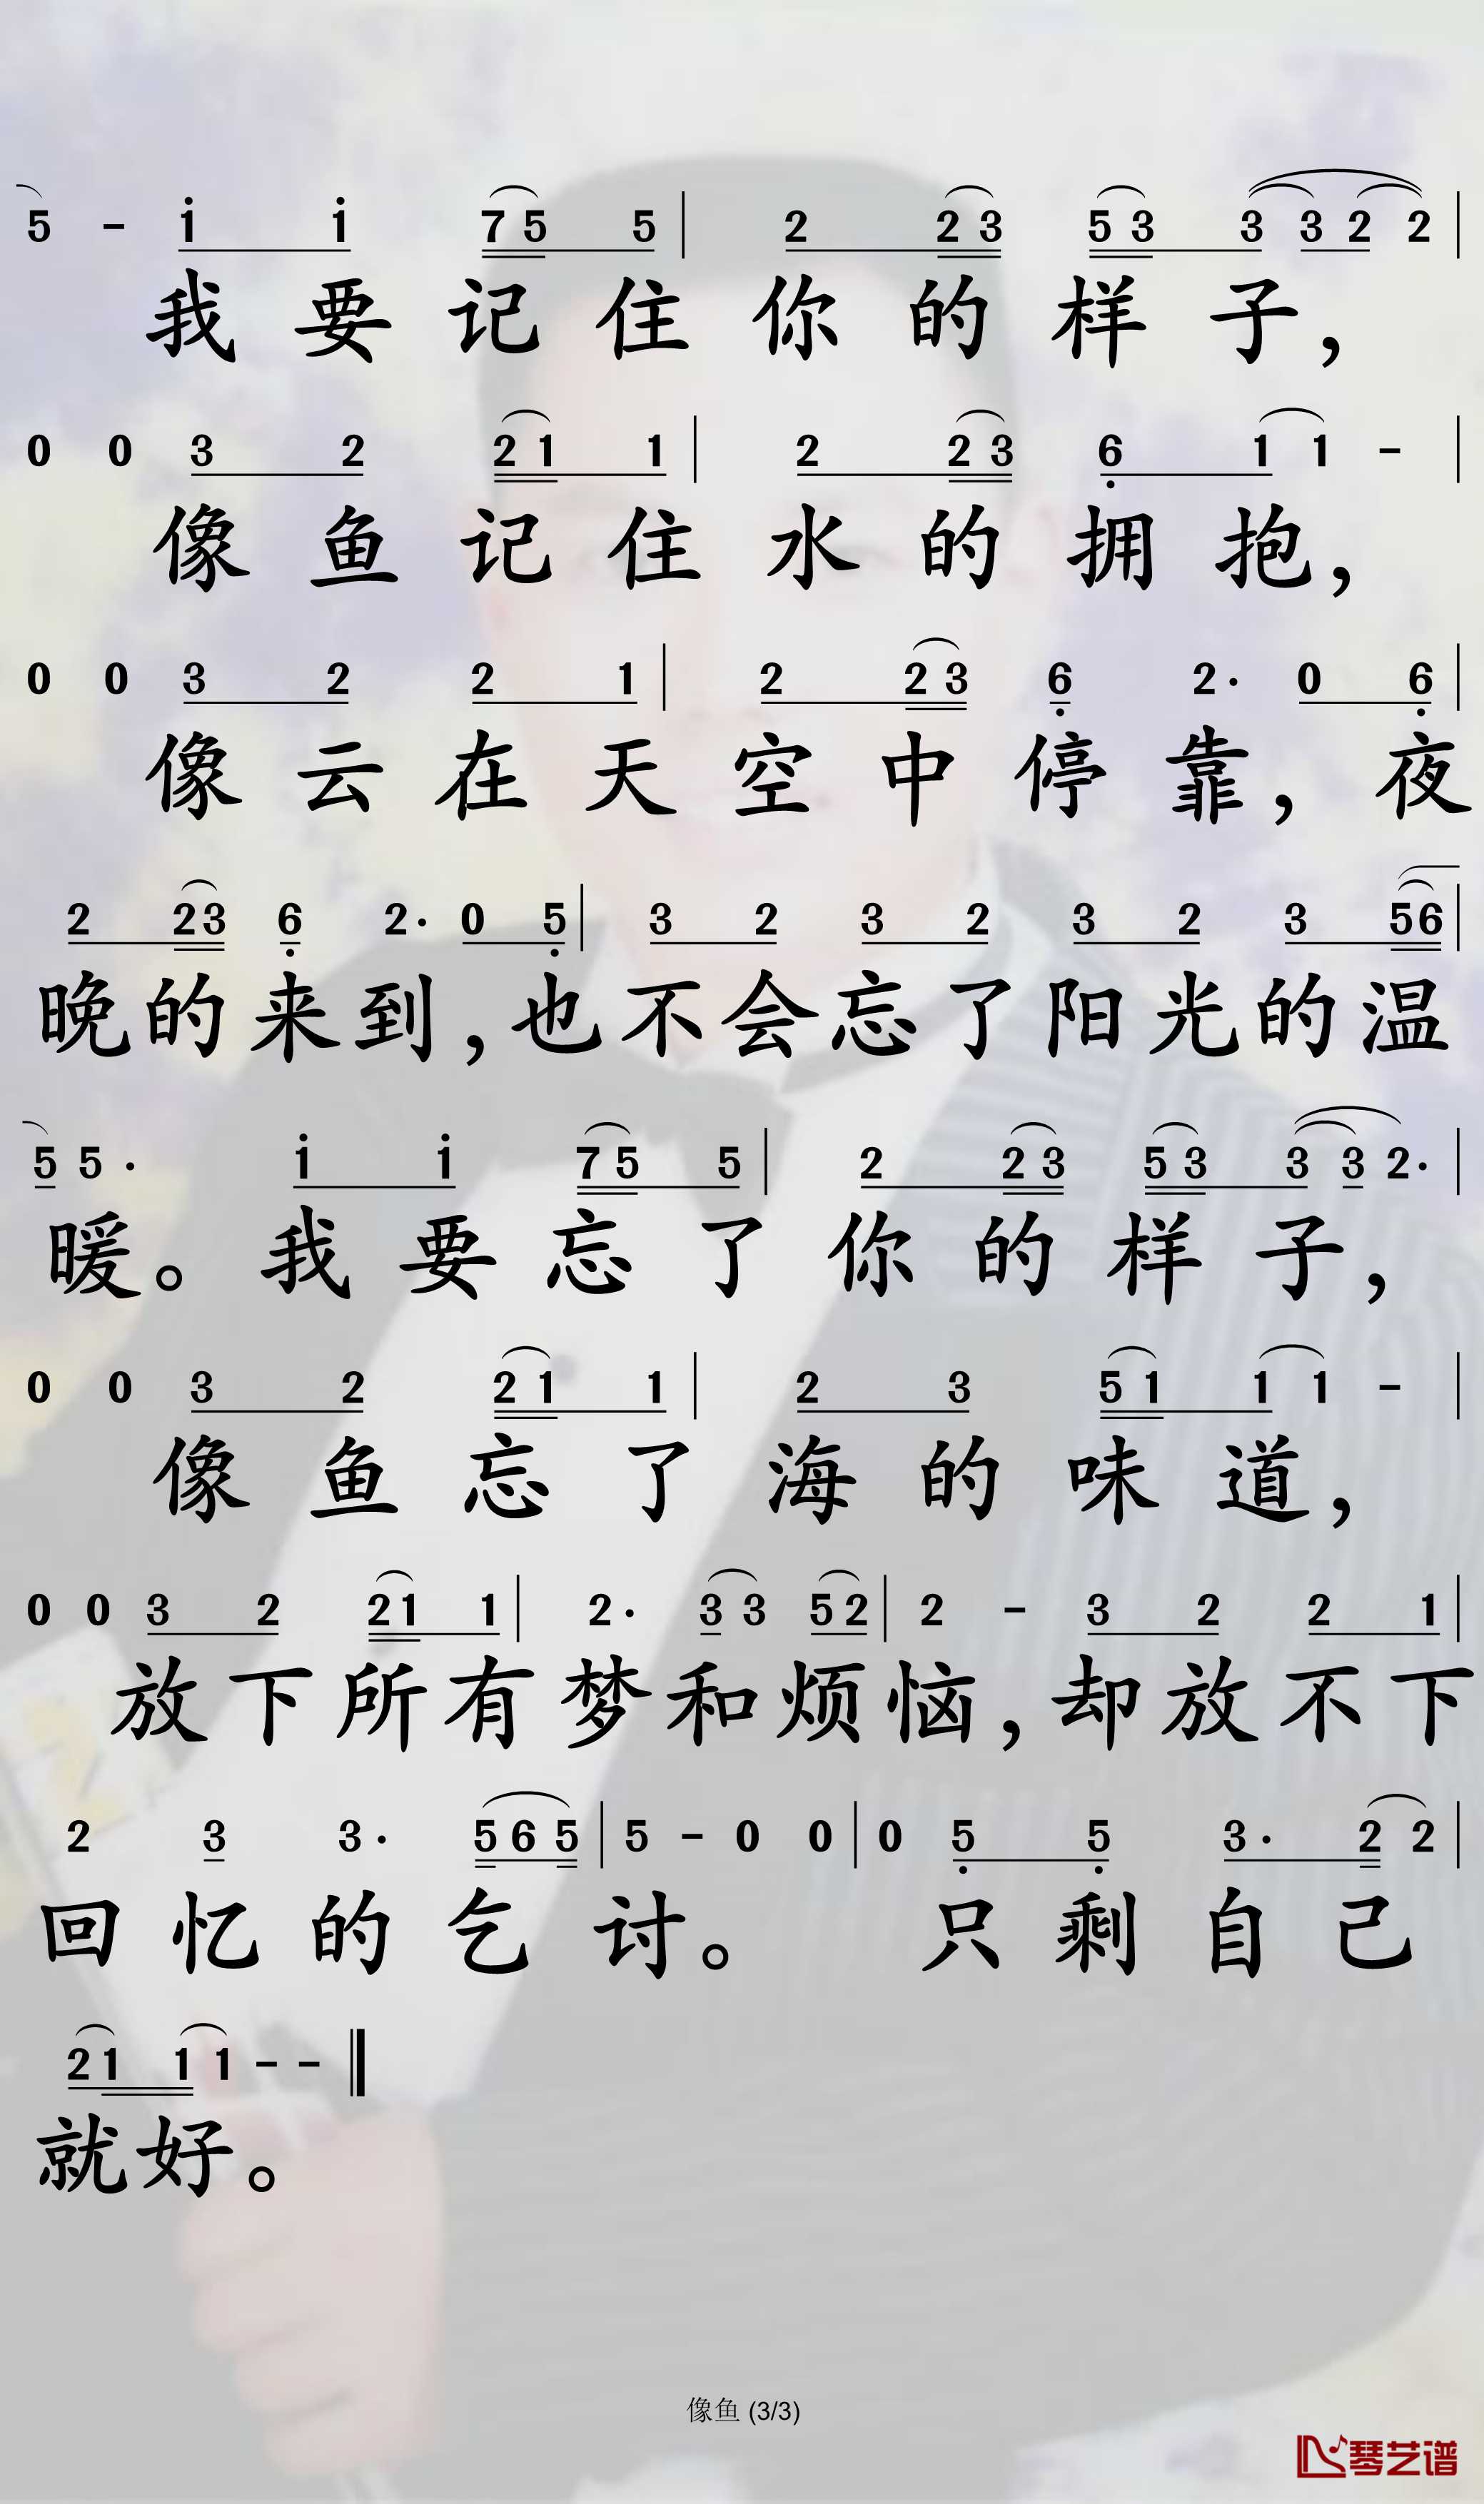 5 - i i 7 5 5 | 2 2 3 5 3 3 3 2 2 |
我要记住你的样子，
0 0 3 2 2 1 1 | 2 2 3 6 1 1 - |
像鱼记住水的拥抱，
0 0 3 2 2 1 | 2 2 3 6 2· 0 6 |
像云在天空中停靠，夜
2 2 3 6 2· 0 5 | 3 2 3 2 3 2 3 5 6 |
晚的来到，也不会忘了阳光的温
5 5 · i i 7 5 5 | 2 2 3 5 3 3 3 2· |
暖。我要忘了你的样子，
0 0 3 2 2 1 1 | 2 3 5 1 1 1 - |
像鱼忘了海的味道，
0 0 3 2 2 1 1 | 2· 3 3 5 2 | 2 - 3 2 2 1 |
放下所有梦和烦恼，却放不下
2 3 3· 5 6 5 | 5 - 0 0 | 0 5 5 3· 2 2 |
回忆的乞讨。只剩自己
2 1 1 1 - - ‖
就好。
像鱼 (3/3)
琴艺谱